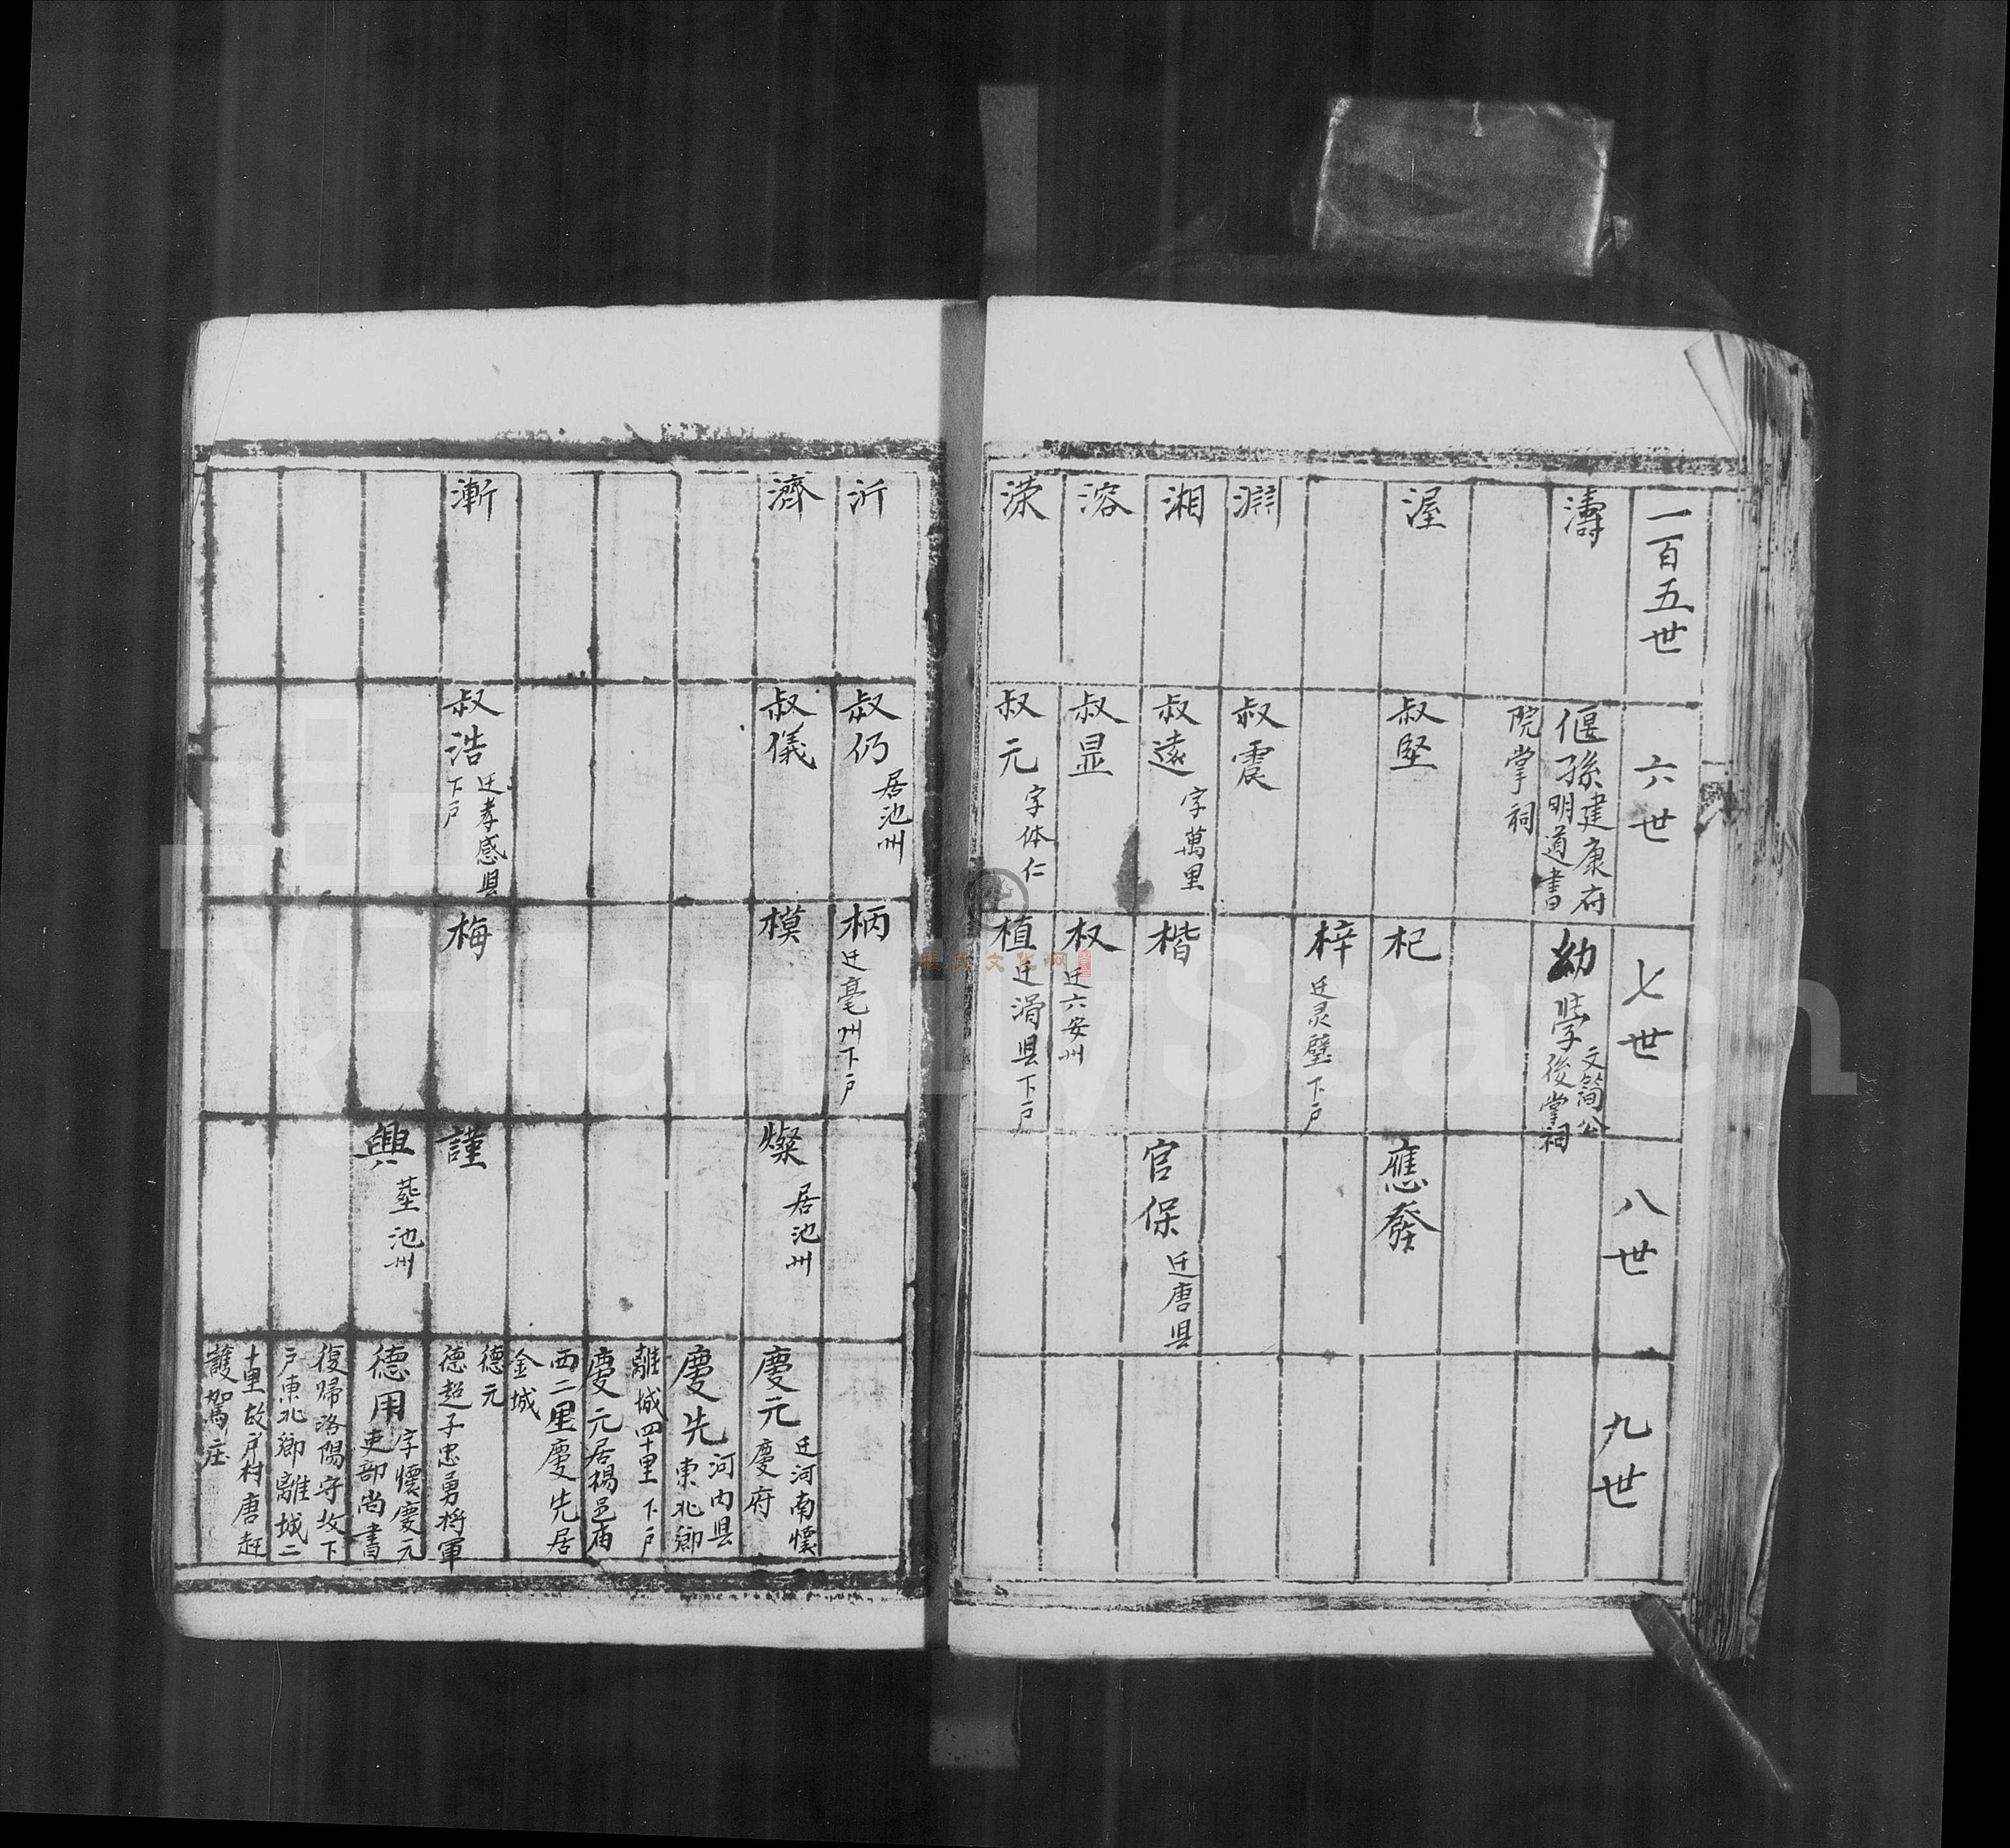 一百五世
六世
七世
八世
九世
濤
偃孫
建康府
明道書
院掌祠
幼學
文簡公
後掌祠
渥
叔堅
杞
應發
梓
迁灵璧下户
淵
叔震
湘
叔遠
字萬里
楷
官保
迁唐县
溶
叔显
权
迁六安州
濚
叔元
字体仁
植
迁滑县下户
沂
叔仍
居池州
柄
迁亳州下户
濟
叔儀
模
燦
居池州
慶元
迁河南懷
慶府
慶先
河内县
東北鄉
離城四十里下户
慶元居楊邑庙
西二里慶先居
金城
漸
叔浩
迁孝感县
下户
梅
謹
德元
德超子忠勇將軍
興
塟池州
德用
字懷慶元
吏部尚書
復歸洛陽守坟下
户東北鄉離城二
十里故户村唐赶
護駕庄
FamilySearch